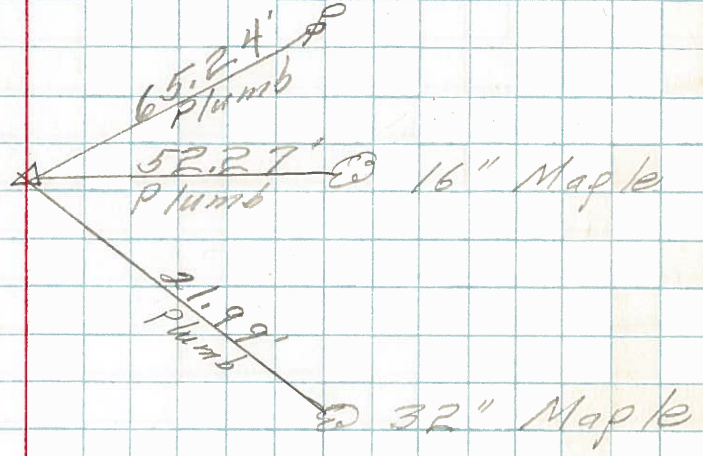 65.24'
Plumb
52.27'
Plumb
16" Maple
21.99'
Plumb
32" Maple